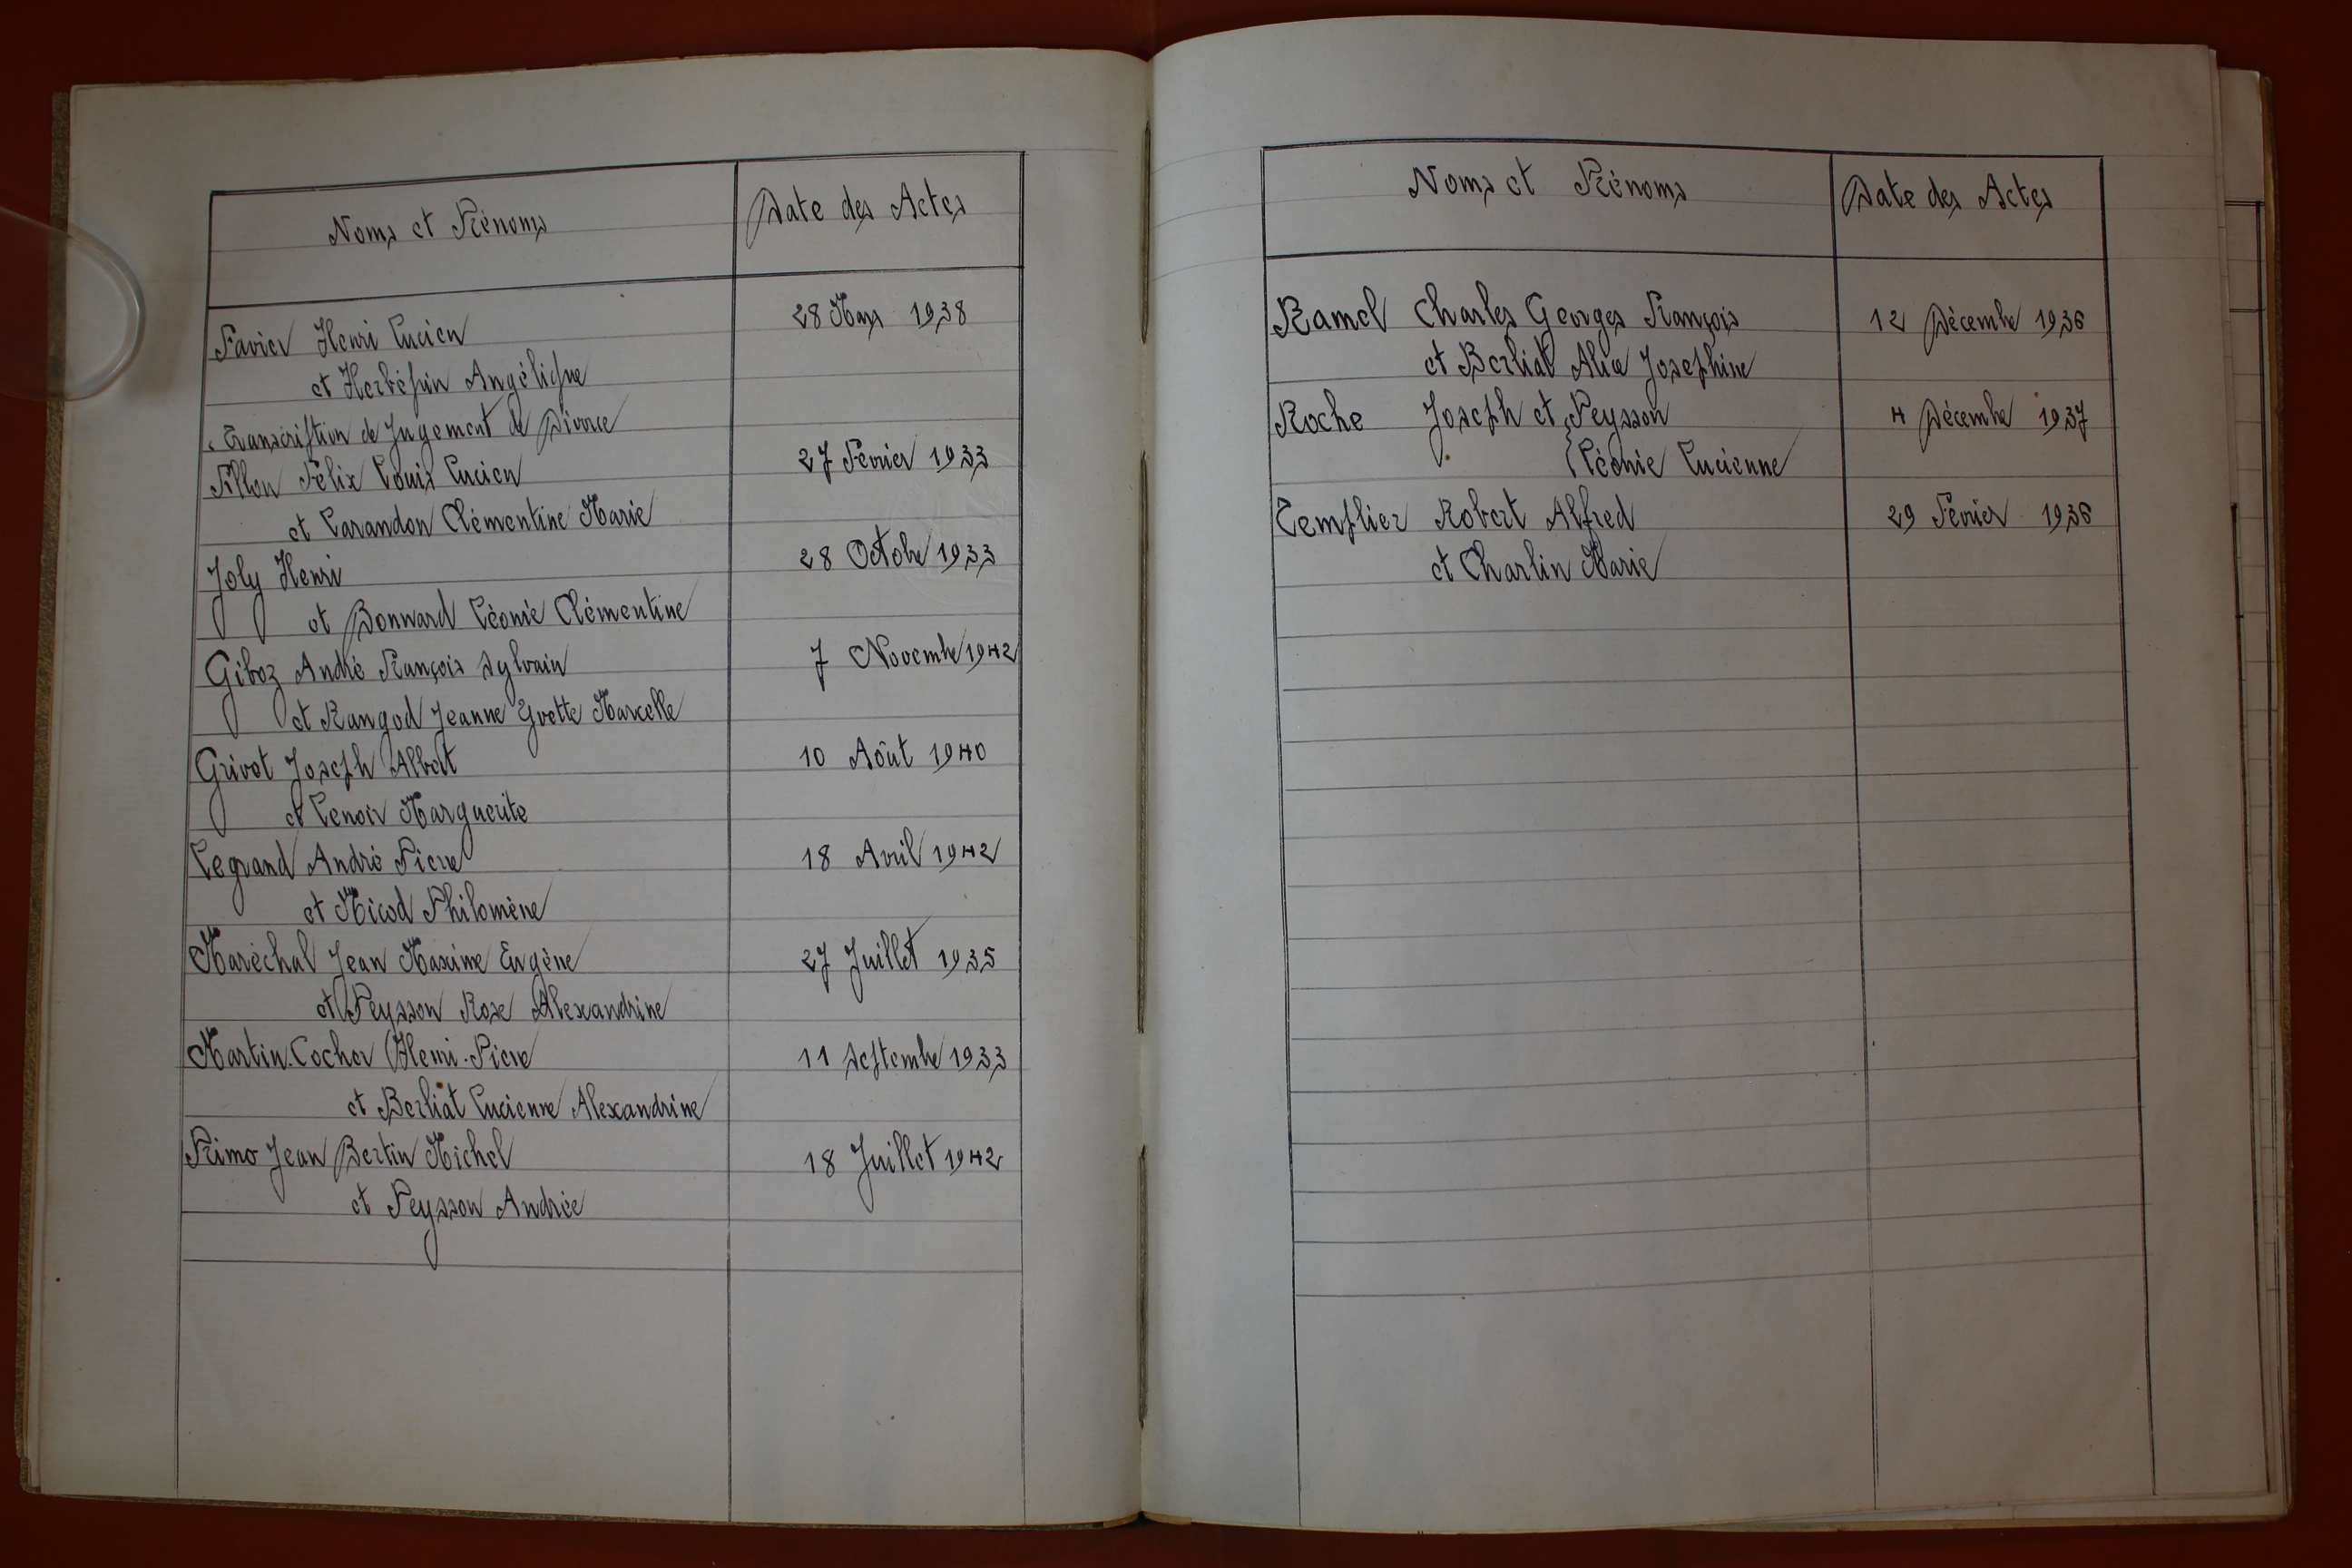 Noms et Prénoms Date des Actes
Favier Henri Lucien 28 Mars 1938
et Herbépin Angélique
Transcription de Jugement de Divorce
Fillon Félix Louis Lucien 27 Février 1933
et Carandon Clémentine Marie
Joly Henri 28 Octobre 1933
et Bonnard Léonie Clémentine
Giboz André François Sylvain 7 Novembre 1942
et Rangod Jeanne Yvette Marcelle
Grivot Joseph Albert 10 Août 1940
et Lenoir Marguerite
Legrand André Pierre 18 Avril 1942
et Nicod Philomène
Maréchal Jean Maxime Eugène 27 Juillet 1935
et Peysson Rose Alexandrine
Martin-Cocher Henri-Pierre 11 Septembre 1933
et Berliat Lucienne Alexandrine
Primo Jean Bertin Michel 18 Juillet 1942
et Peysson Andrée
Noms et Prénoms Date des Actes
Ramel Charles Georges François 12 Décembre 1936
et Berliat Alice Josephine
Roche Joseph et Peysson 4 Décembre 1937
Léonie Lucienne
Templier Robert Alfred 29 Février 1936
et Charlin Marie